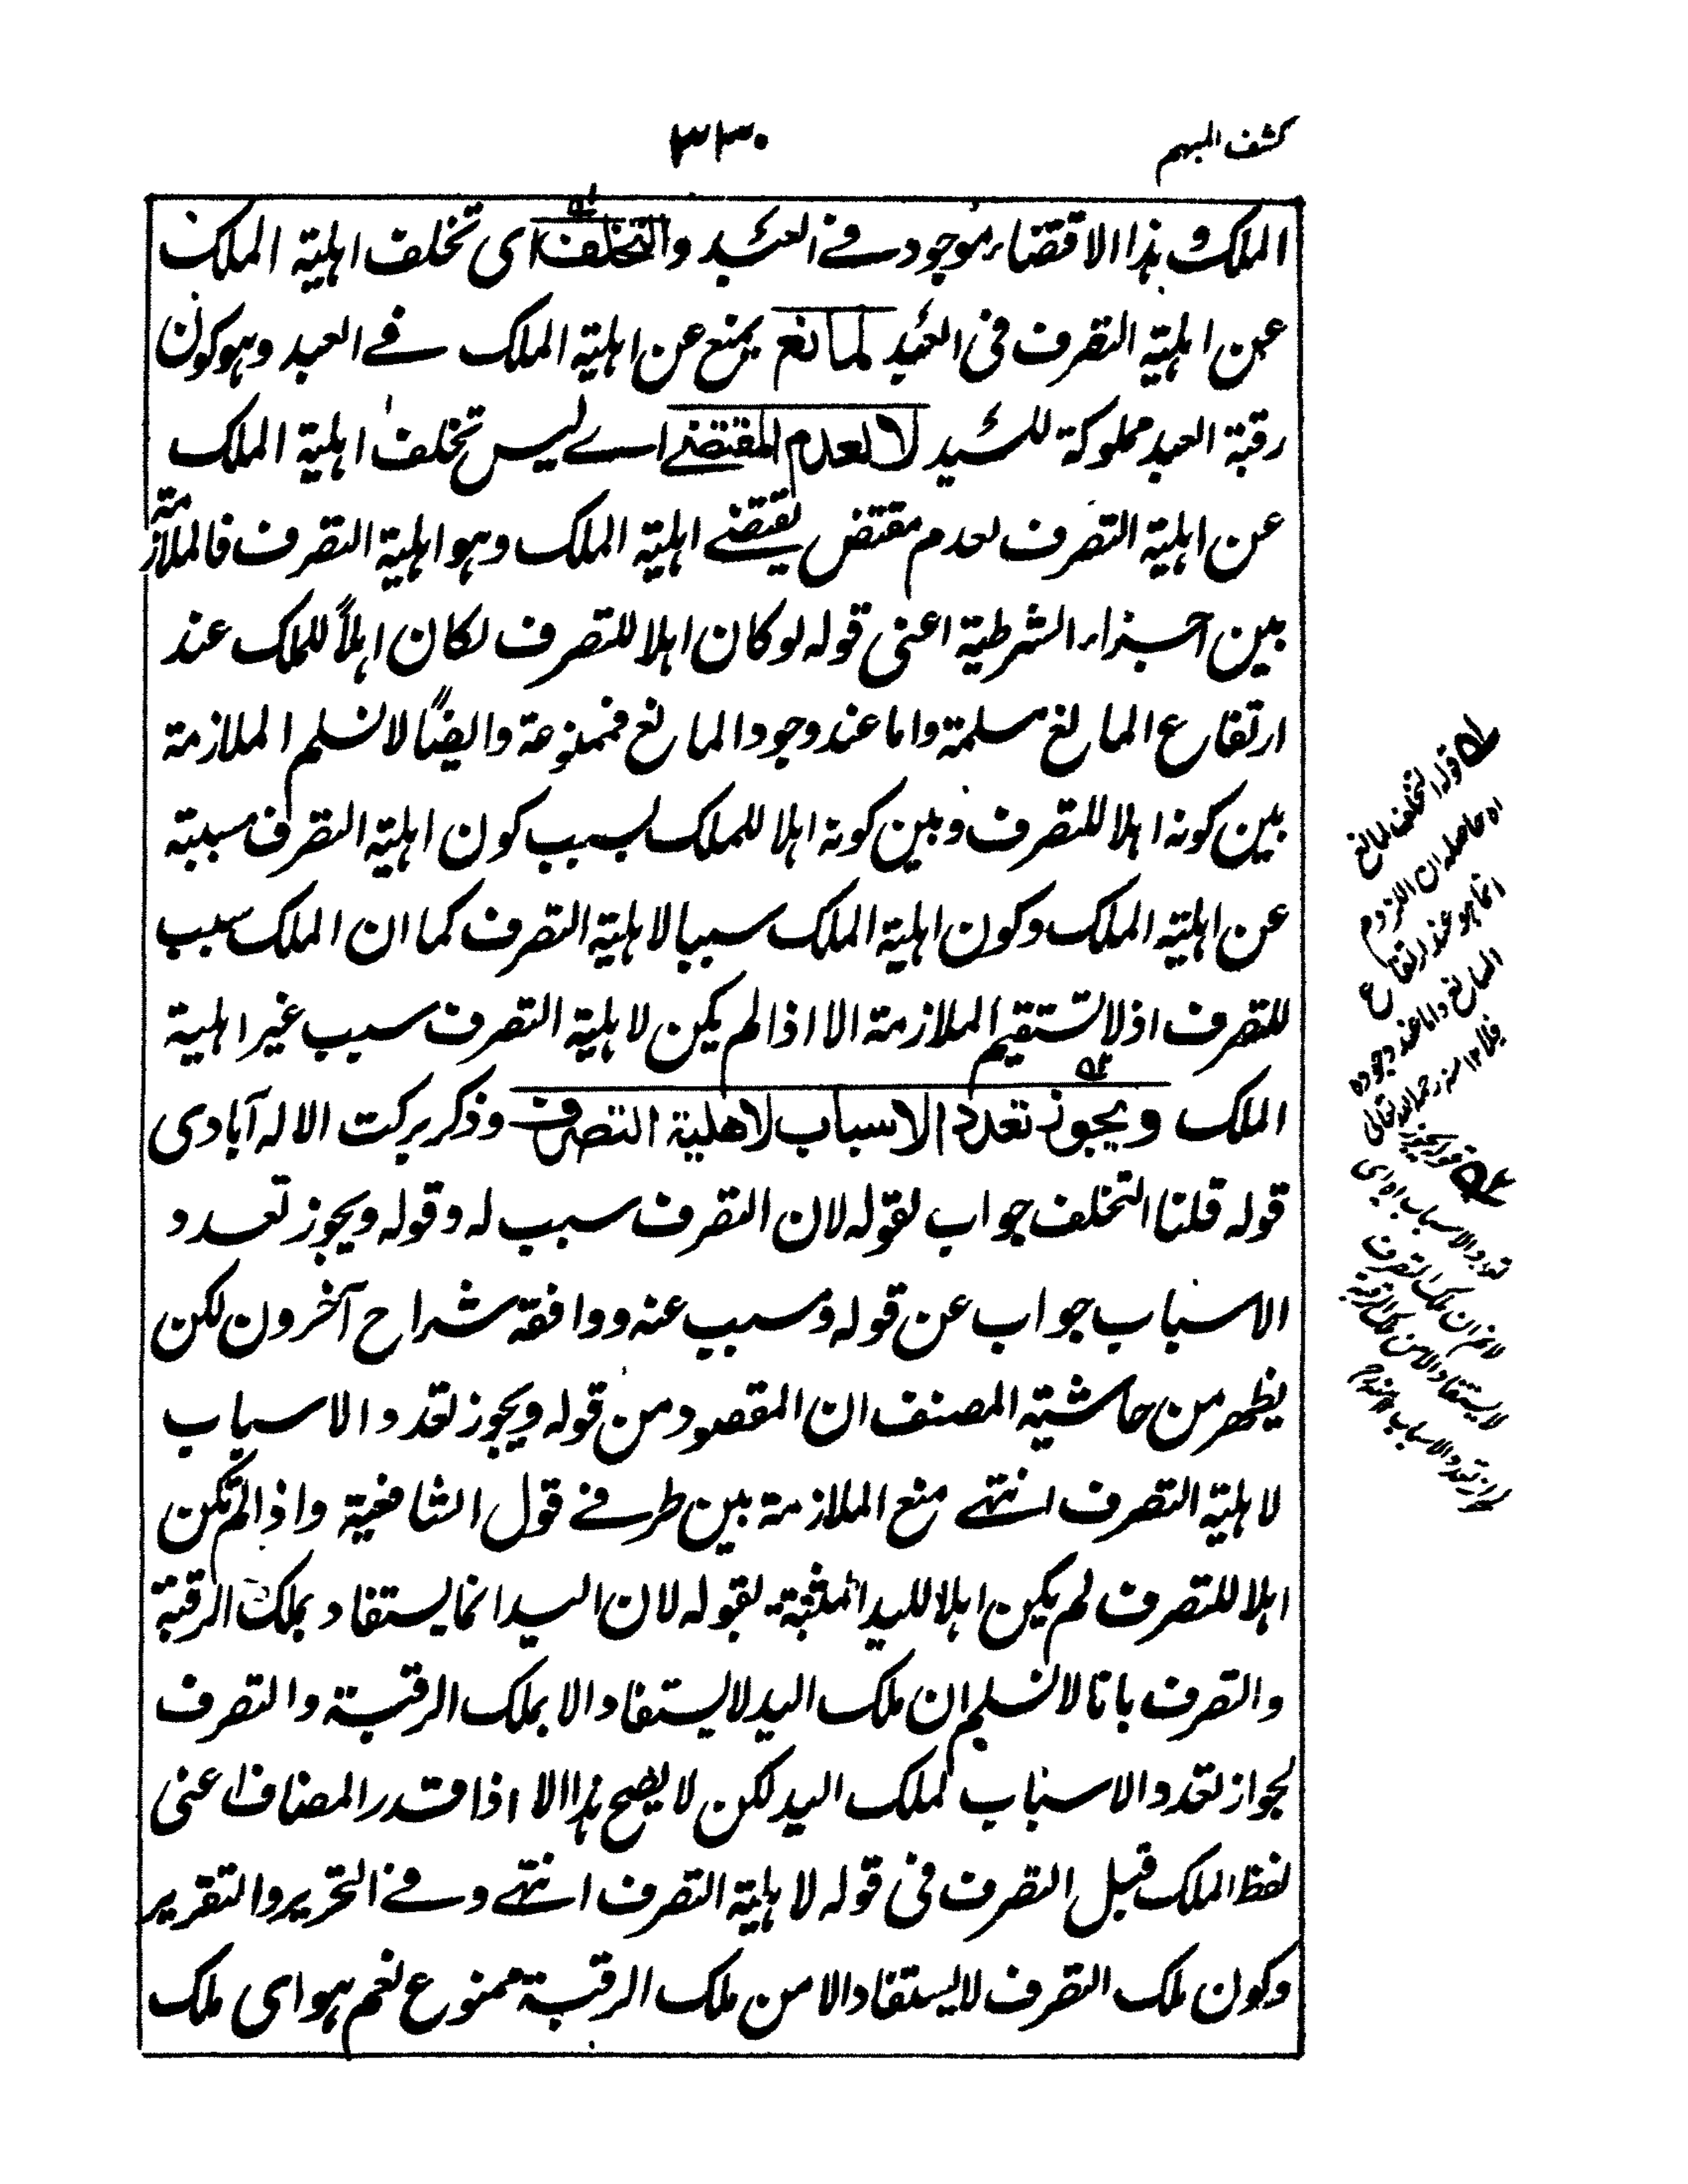 كشف المبهم
٣٣٠
الملك و هذا الاقتضاء موجود في العبد والتخلف اى تخلف اهلية الملك
عن اهلية التصرف فى العبد لمانع يمنع عن اهلية الملك في العبد وهو كون
رقبة العبد مملوكة للسيد لا لعدم المقتضى اى ليس تخلف اهلية الملك
عن اهلية التصرف لعدم مقتض يقتضى اهلية الملك وهو اهلية التصرف فالملازمة
بين اجزاء الشرطية اعنى قوله لو كان اهلا للتصرف لكان اهلاً للملك عند
ارتفاع المانع مسلمة واما عند وجود المانع فممنوعة وايضاً لا نسلم الملازمة
بين كونه اهلا للتصرف وبين كونه اهلا للملك لسبب كون اهلية التصرف مسببة
عن اهلية الملك وكون اهلية الملك سببا لاهلية التصرف كما ان الملك سبب
للتصرف اذ لا تستقيم الملازمة الا اذا لم يكن لاهلية التصرف سبب غير اهلية
الملك ويجوز تعدد الاسباب لاهلية التصرف وذكر بركت الاله آبادى
قوله قلنا التخلف جواب لقوله لان التصرف سبب له وقوله ويجوز تعدد
الاسباب جواب عن قوله ومسبب عنه ووافقه شراح آخرون لكن
يظهر من حاشية المصنف ان المقصود من قوله ويجوز تعدد الاسباب
لاهلية التصرف انتهى منع الملازمة بين طرفى قول الشافعية واذا لم يكن
اهلا للتصرف لم يكن اهلا لليد المثبتة بقوله لان اليد انما يستفاد بملك الرقبة
والتصرف بانا لا نسلم ان ملك اليد لا يستفاد الا بملك الرقبة والتصرف
لجواز تعدد الاسباب لملك اليد لكن لا يصح هذا الا اذا قدر المضاف اعنى
لفظ الملك قبل التصرف فى قوله لاهلية التصرف انتهى وفى التحرير والتقرير
وكون ملك التصرف لا يستفاد الا من ملك الرقبة ممنوع نعم هو اى ملك
قوله التخلف لمانع
اه حاصله ان اللزوم
انما هو عند ارتفاع
المانع واما عند وجوده
فلا ١٢ منه رحمه الله تعالى
قوله يجوز
تعدد الاسباب اه اى
لا نم ان ملك التصرف
لا يستفاد الا من ملك الرقبة
لجواز تعدد الاسباب